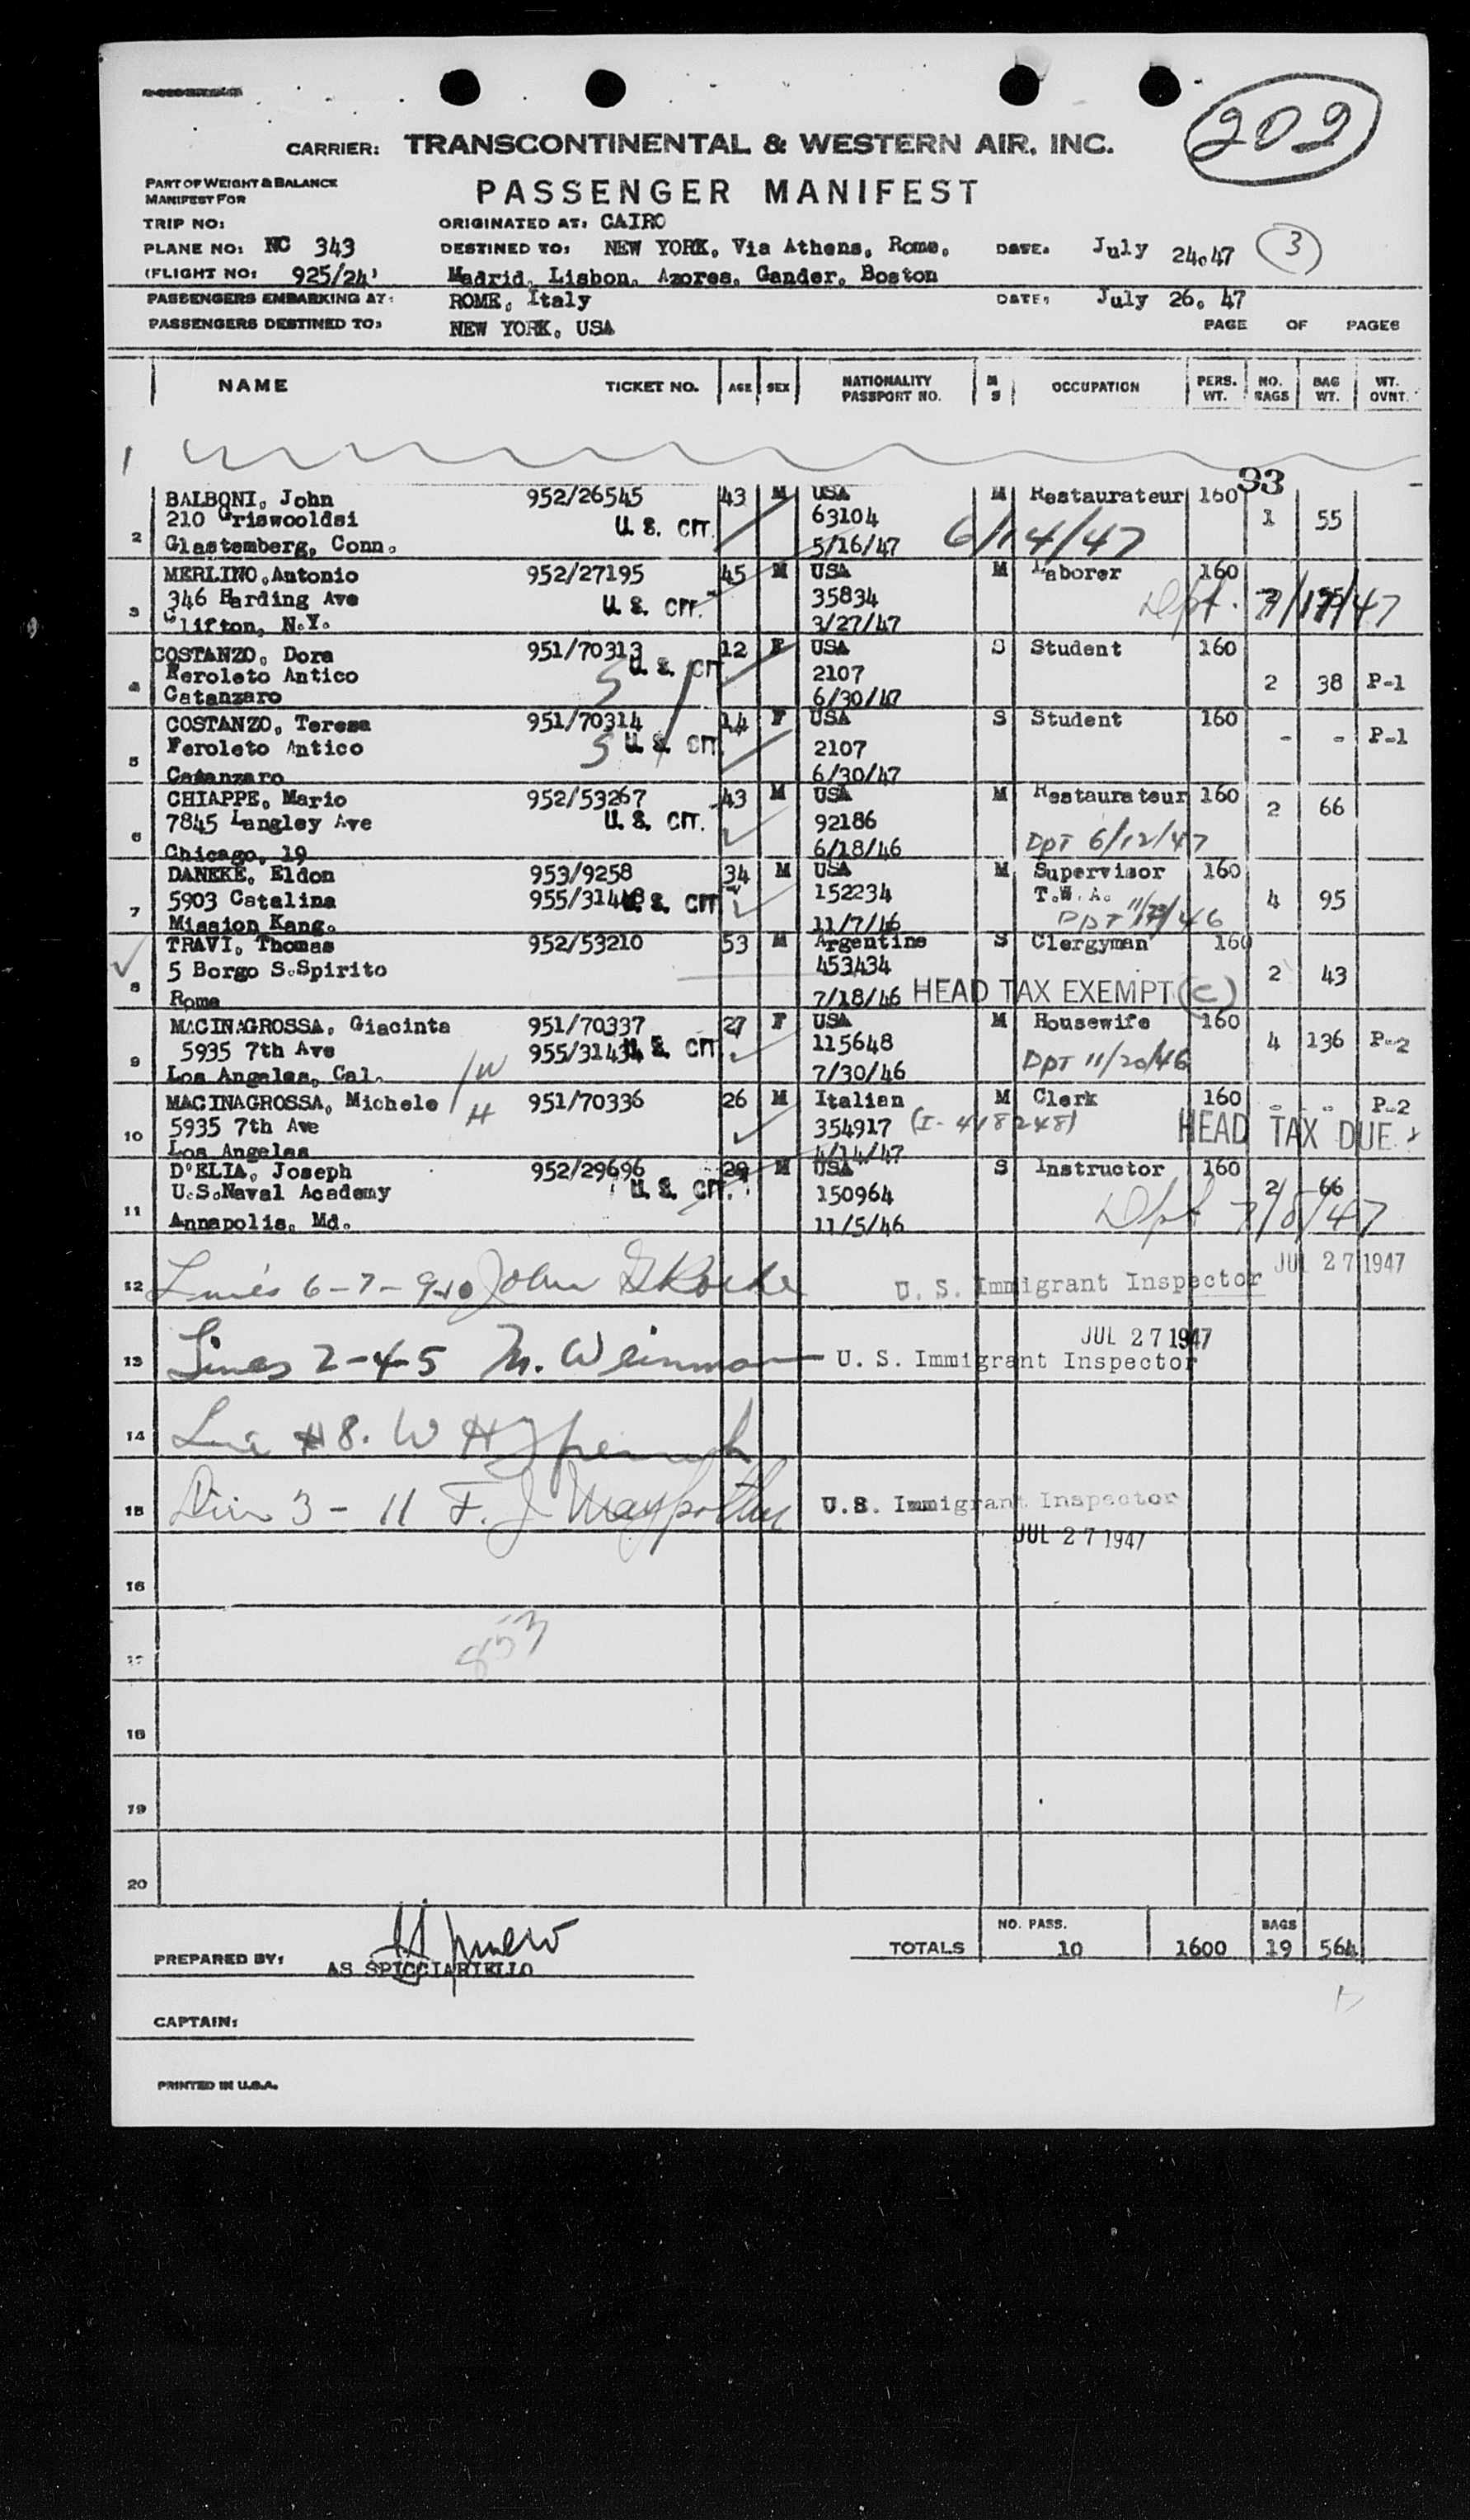 202
CARRIER: TRANSCONTINENTAL & WESTERN AIR, INC.
PART OF WEIGHT & BALANCE
MANIFEST FOR
PASSENGER MANIFEST
TRIP NO:
ORIGINATED AT: CAIRO
PLANE NO: NC 343
DESTINED TO: NEW YORK, Via Athens, Rome,
DATE. July 24.47
3
(FLIGHT NO: 925/24)
Madrid, Lisbon, Azores, Gander, Boston
PASSENGERS EMBARKING AT: ROME, Italy
DATE: July 26. 47
PASSENGERS DESTINED TO: NEW YORK, USA
PAGE OF PAGES
NAME TICKET NO. AGE SEX NATIONALITY PASSPORT NO. M S OCCUPATION PERS. WT. NO. BAGS BAG WT. WT. OVNT.
1
93
BALBONI, John 952/26545 43 M USA M Restaurateur 160
210 Griswooldsi U. S. CIT. 63104 1 55
2 Glastemberg, Conn. 5/16/47 6/14/47
MERLINO, Antonio 952/27195 45 M USA M Laborer 160
346 Harding Ave U. S. CIT. 35834 Dpt.
3 Clifton, N.Y. 3/27/47
COSTANZO, Dora 951/70313 12 F USA S Student 160
Feroleto Antico U. S. CIT 2107 2 38 P-1
4 Catanzaro 5 6/30/47
COSTANZO, Teresa 951/70314 14 F USA S Student 160
Feroleto Antico 5 U. S. CIT. 2107 - - P-1
5 Catanzaro 6/30/47
CHIAPPE, Mario 952/53267 43 M USA M Restaurateur 160
7845 Langley Ave U. S. CIT. 92186 2 66
6 Chicago, 19 6/18/46 DPT 6/12/47
DANEKE, Eldon 953/9258 34 M USA M Supervisor 160
5903 Catalina U. S. CIT 152234 T.W.A. 4 95
7 Mission Kang. 11/7/46 DPT
TRAVI, Thomas 952/53210 53 M Argentine S Clergyman 160
5 Borgo S.Spirito 453434 2 43
8 Rome 7/18/46 HEAD TAX EXEMPT (C)
MACINAGROSSA, Giacinta 951/70337 27 F USA M Housewife 160
5935 7th Ave 955/31434 U. S. CIT 115648 4 136 P-2
9 Los Angeles, Cal. W 7/30/46 DPT 11/20/46
MACINAGROSSA, Michele H 951/70336 26 M Italian M Clerk 160 - - P-2
5935 7th Ave 354917 (I-418248) HEAD TAX DUE
10 Los Angeles 4/14/47
D'ELIA, Joseph 952/29696 29 M USA S Instructor 160
U.S.Naval Academy U. S. CIT. 150964 2 66
11 Annapolis, Md. 11/5/46 Dpt 7/8/47
JUL 27 1947
12 Lines 6-7-9-10 John U. S. Immigrant Inspector
JUL 27 1947
13 Lines 2-4-5 M. Weinman U. S. Immigrant Inspector
14 Line #8. W H
15 3 - 11 F. J. U.S. Immigrant Inspector
JUL 27 1947
16
853
17
18
19
20
NO. PASS. BAGS
TOTALS 10 1600 19 564
PREPARED BY: AS SPICCIARIELLO
CAPTAIN:
PRINTED IN U.S.A.